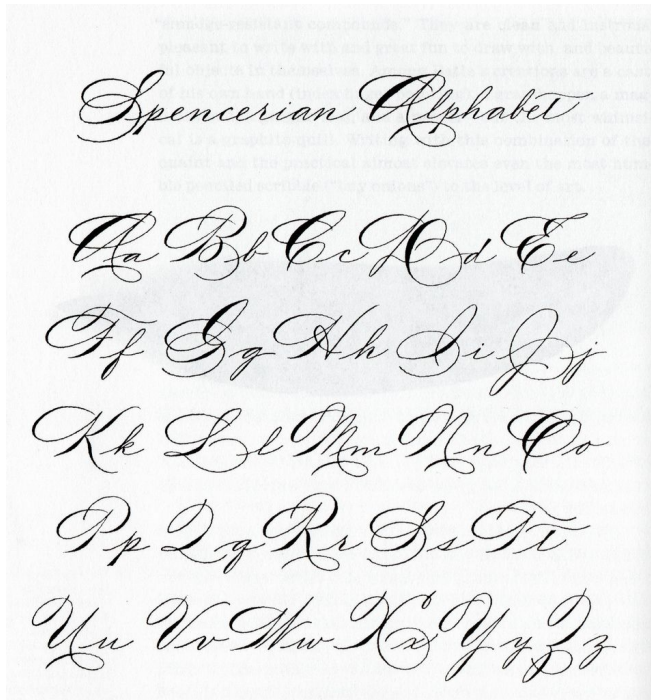 Spencerian Alphabet
Aa Bb Cc Dd Ee
Ff Gg Hh Ii Jj
Kk Ll Mm Nn Oo
Pp Qq Rr Ss Tt
Uu Vv Ww Xx Yy Zz